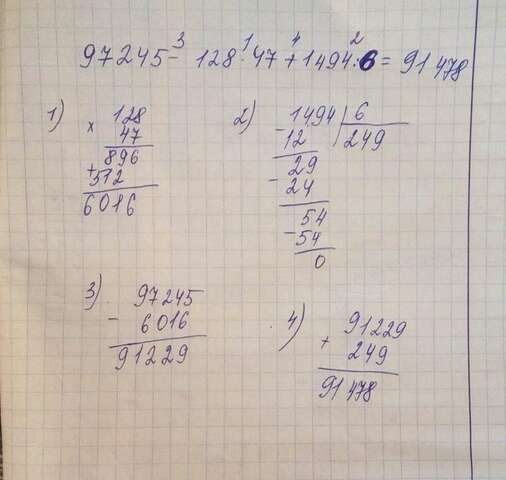 3 1 4 2
97245 - 128 · 47 + 1494 : 6 = 91478
1) 128
× 47
896
+ 512
6016
2) 1494 | 6
- 12 249
29
- 24
54
- 54
0
3) 97245
- 6016
91229
4) 91229
+ 249
91478